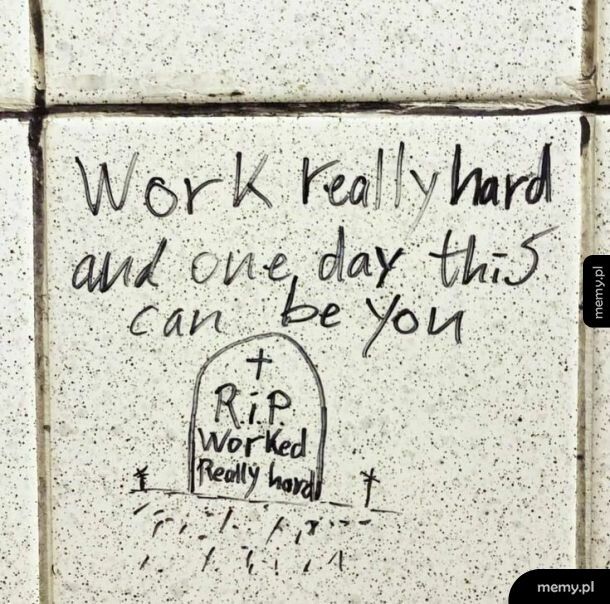 Work really hard
and one day this
can be you
R.i.P.
Worked
Really hard
memy.pl
memy.pl